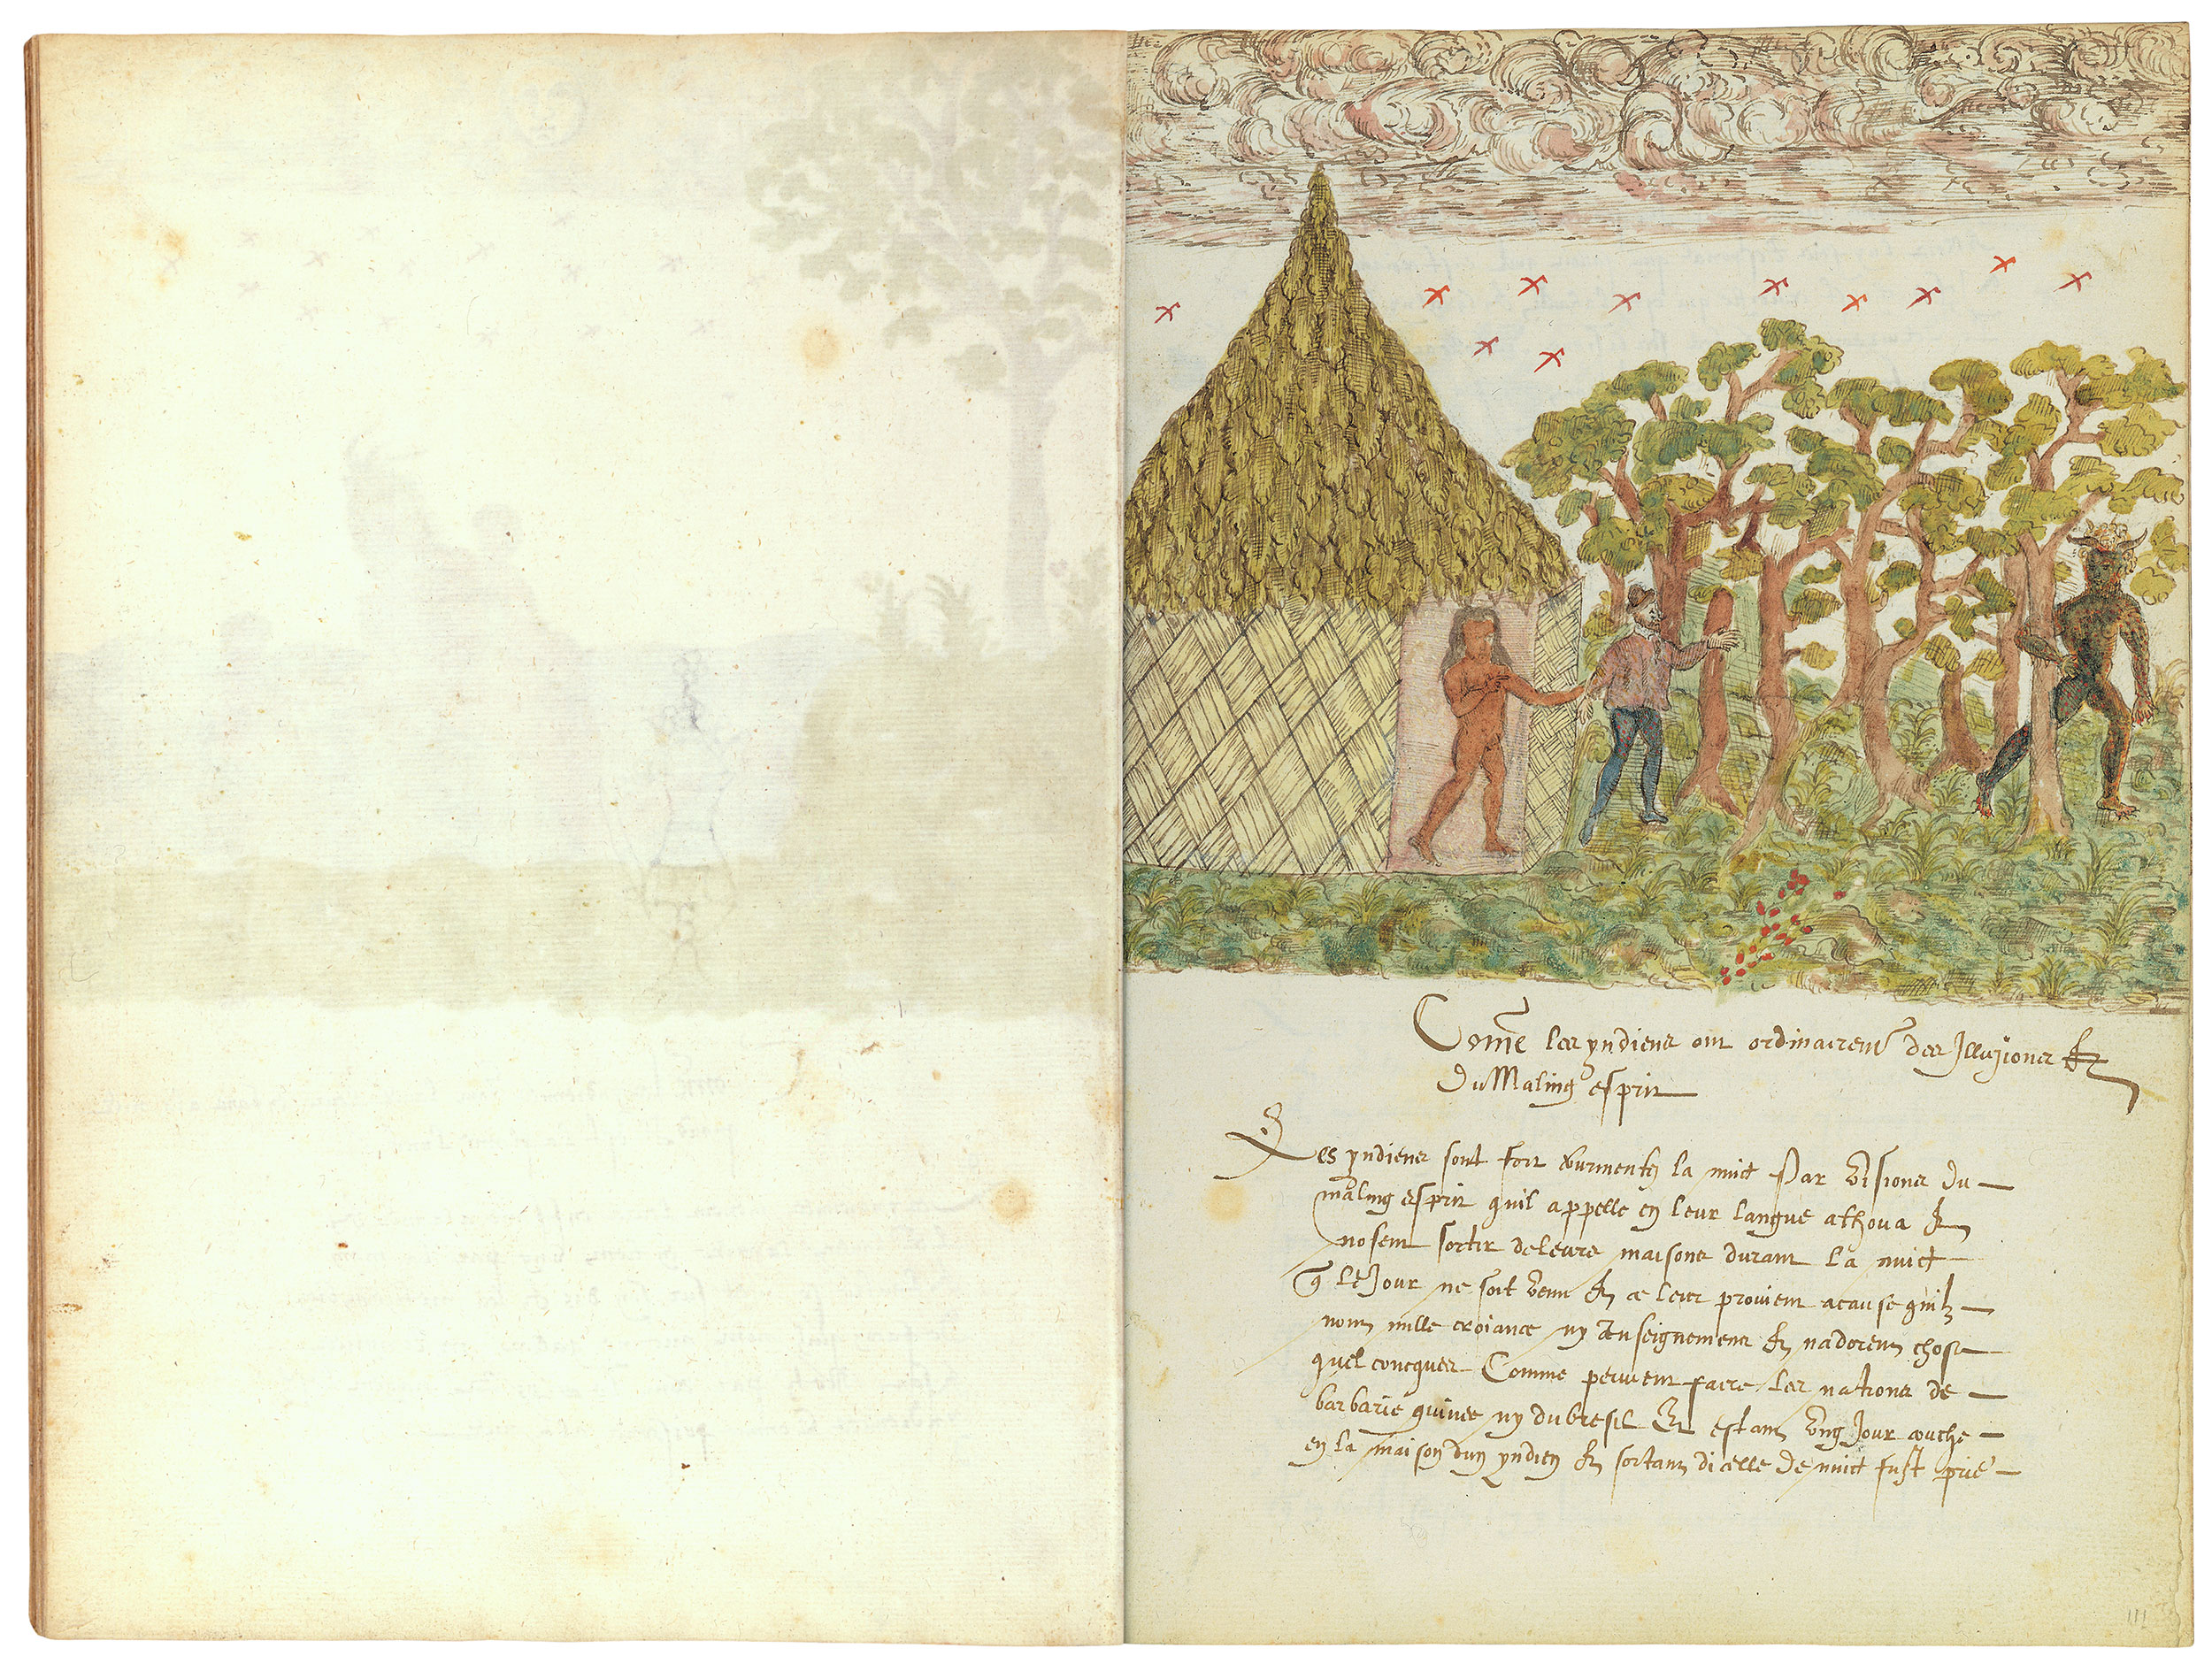 Comē les yndiens ont ordinairemt des Illusions &
Du Maling esprit
Les yndiens sont fort tourmentez la nuict Par visions du
maling esprit quil appelle en leur langue athoua &
nosent sortir de leurs maisons durant la nuict
q̃ le Jour ne soit venu & ce leur provient acause quilz
nont nulle croiance ny enseignemens & nadorent chose
quelconcques Comme peuvent faire les nations de
barbarie guinee ny du bresil Et estant vng Jour couche
en la maison dun yndien & sortant dicelle de nuict fust prie
111